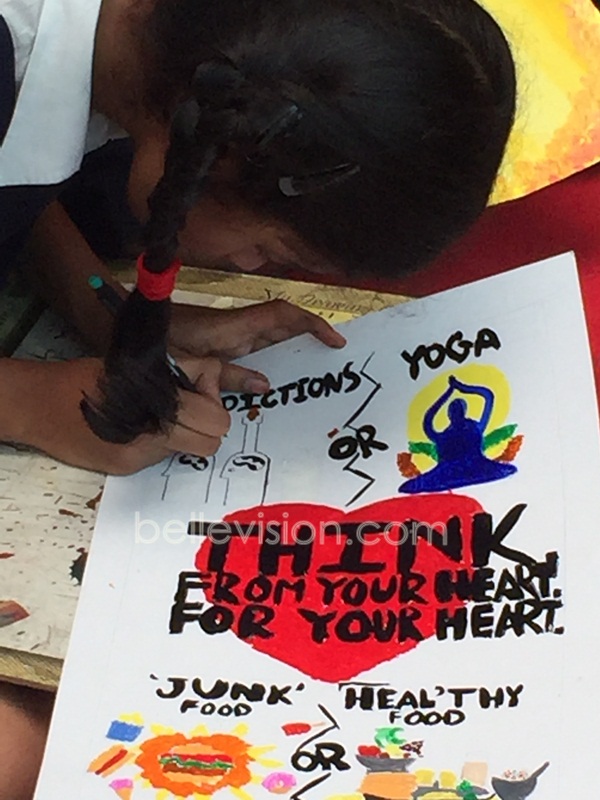 YOGA
DICTIONS
OR
bellevision.com
THINK
FROM YOUR HEART.
FOR YOUR HEART.
'JUNK' HEAL'THY
FOOD FOOD
OR